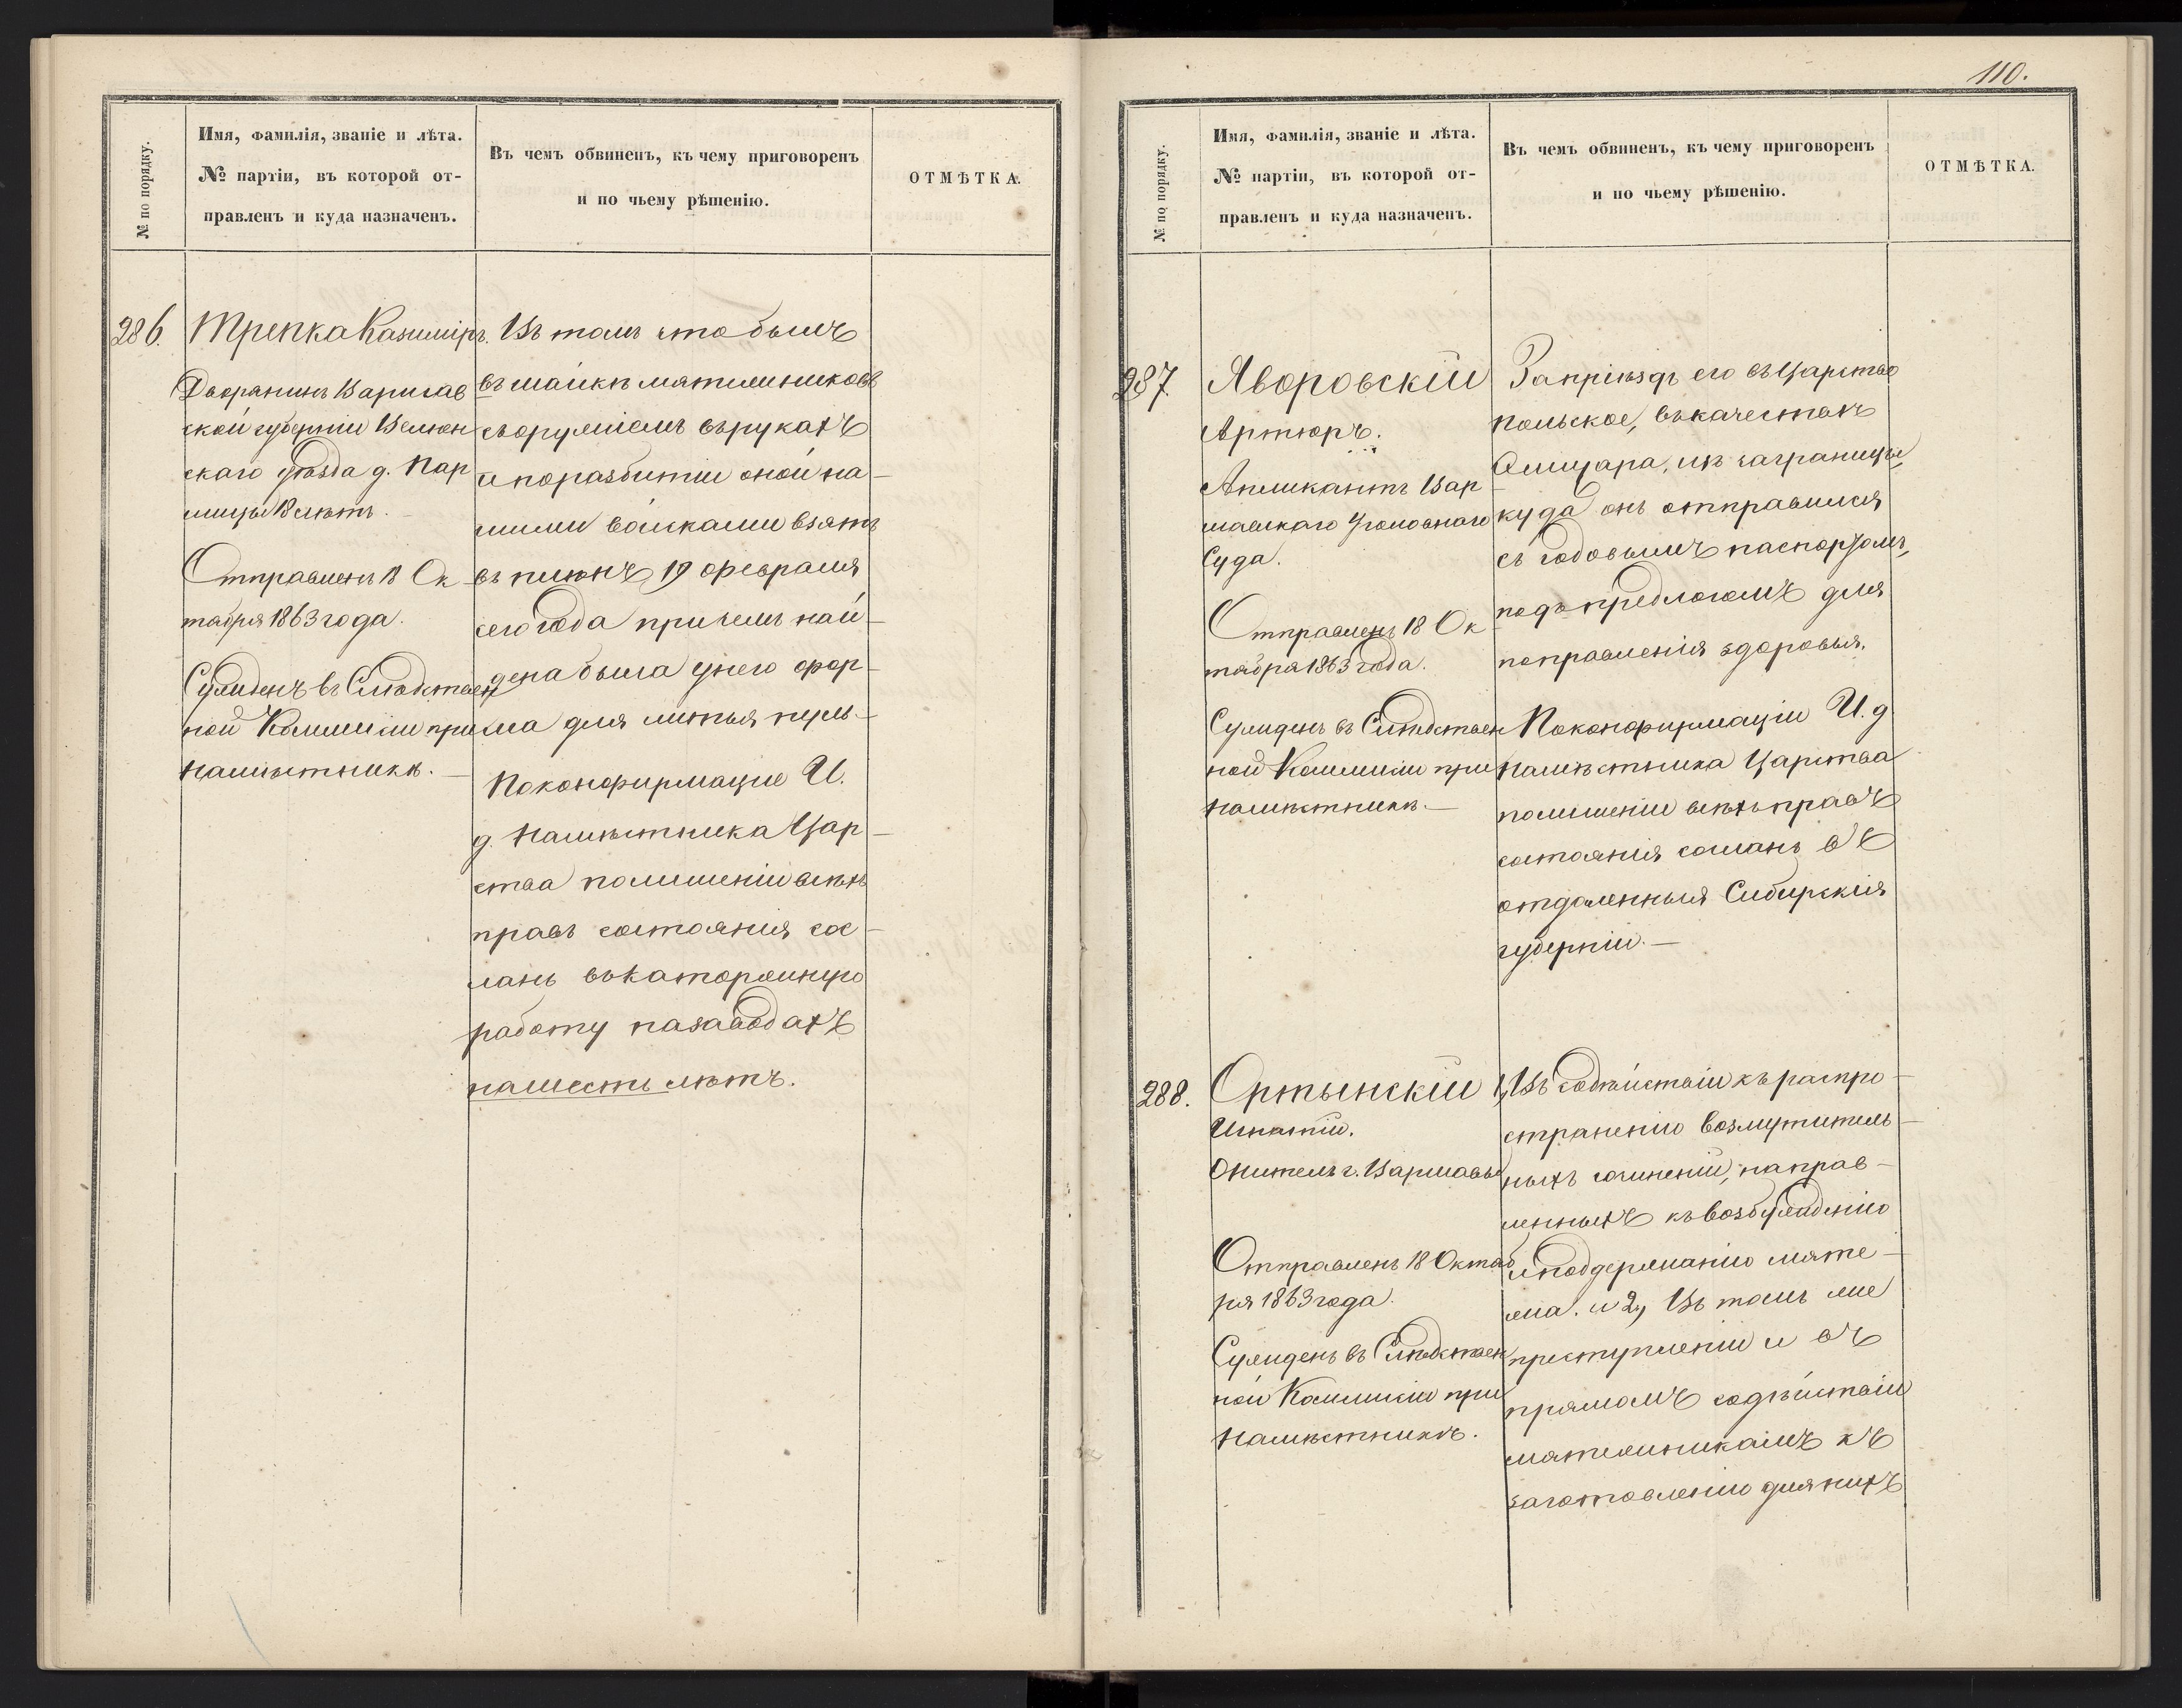 № по порядку.
Имя, фамилія, званіе и лѣта.
№ партіи, въ которой от-
правленъ и куда назначенъ.
Въ чемъ обвиненъ, къ чему приговоренъ
и по чьему рѣшенію.
ОТМѢТКА.
286.
Трепка Казиміръ.
Дворянинъ Варшав
ской губерніи Велюн
скаго уѣзда д. Пар
лѣтъ.
Отправленъ 18 Ок
тября 1863 года.
Сужденъ въ Слѣдствен
ной Коммисіи при
Намѣстникѣ.—
Въ томъ что былъ
въ шайкѣ мятежниковъ
съ оружіемъ въ рукахъ
и по разбитіи оной на-
шими войсками взятъ
въ плѣнъ 19 февраля
сего года причемъ най-
дена была у него фор-
ма для литья пуль.—
По конфирмаціи И.
д. Намѣстника Цар-
ства по лишеніи всѣхъ
правъ состоянія сос-
ланъ въ каторжную
работу на заводахъ
на шесть лѣтъ.
110.
№ по порядку.
Имя, фамилія, званіе и лѣта.
№ партіи, въ которой от-
правленъ и куда назначенъ.
Въ чемъ обвиненъ, къ чему приговоренъ
и по чьему рѣшенію.
ОТМѢТКА.
287.
Яворовскій
Артюръ.
Апликантъ Вар
шавскаго Уголовнаго
Суда.
Отправленъ 18 Ок
тября 1863 года.
Сужденъ въ Слѣдствен
ной Коммисіи при
Намѣстникѣ.—
За пріѣздъ его въ Царство
Польское, въ качествѣ
Эмисара, изъ заграницы,
куда онъ отправился
съ годовымъ паспортомъ,
подъ предлогомъ для
поправленія здоровья.
По конфирмаціи И. д
Намѣстника Царства
по лишеніи всѣхъ правъ
состоянія сосланъ въ
отдаленныя Сибирскія
губерніи.—
288.
Ортынскій
Игнатій.
Житель г. Варшавы
Отправленъ 18 Октяб
ря 1863 года.
Сужденъ въ Слѣдствен
ной Коммисіи при
Намѣстникѣ.
1, Въ содѣйствіи къ распро-
страненію возмутитель-
ныхъ сочиненій, направ-
ленныхъ къ возбужденію
и поддержанію мяте-
жа. и 2, Въ томъ же
преступленіи и въ
прямомъ содѣйствіи
мятежникамъ къ
заготовленію для нихъ